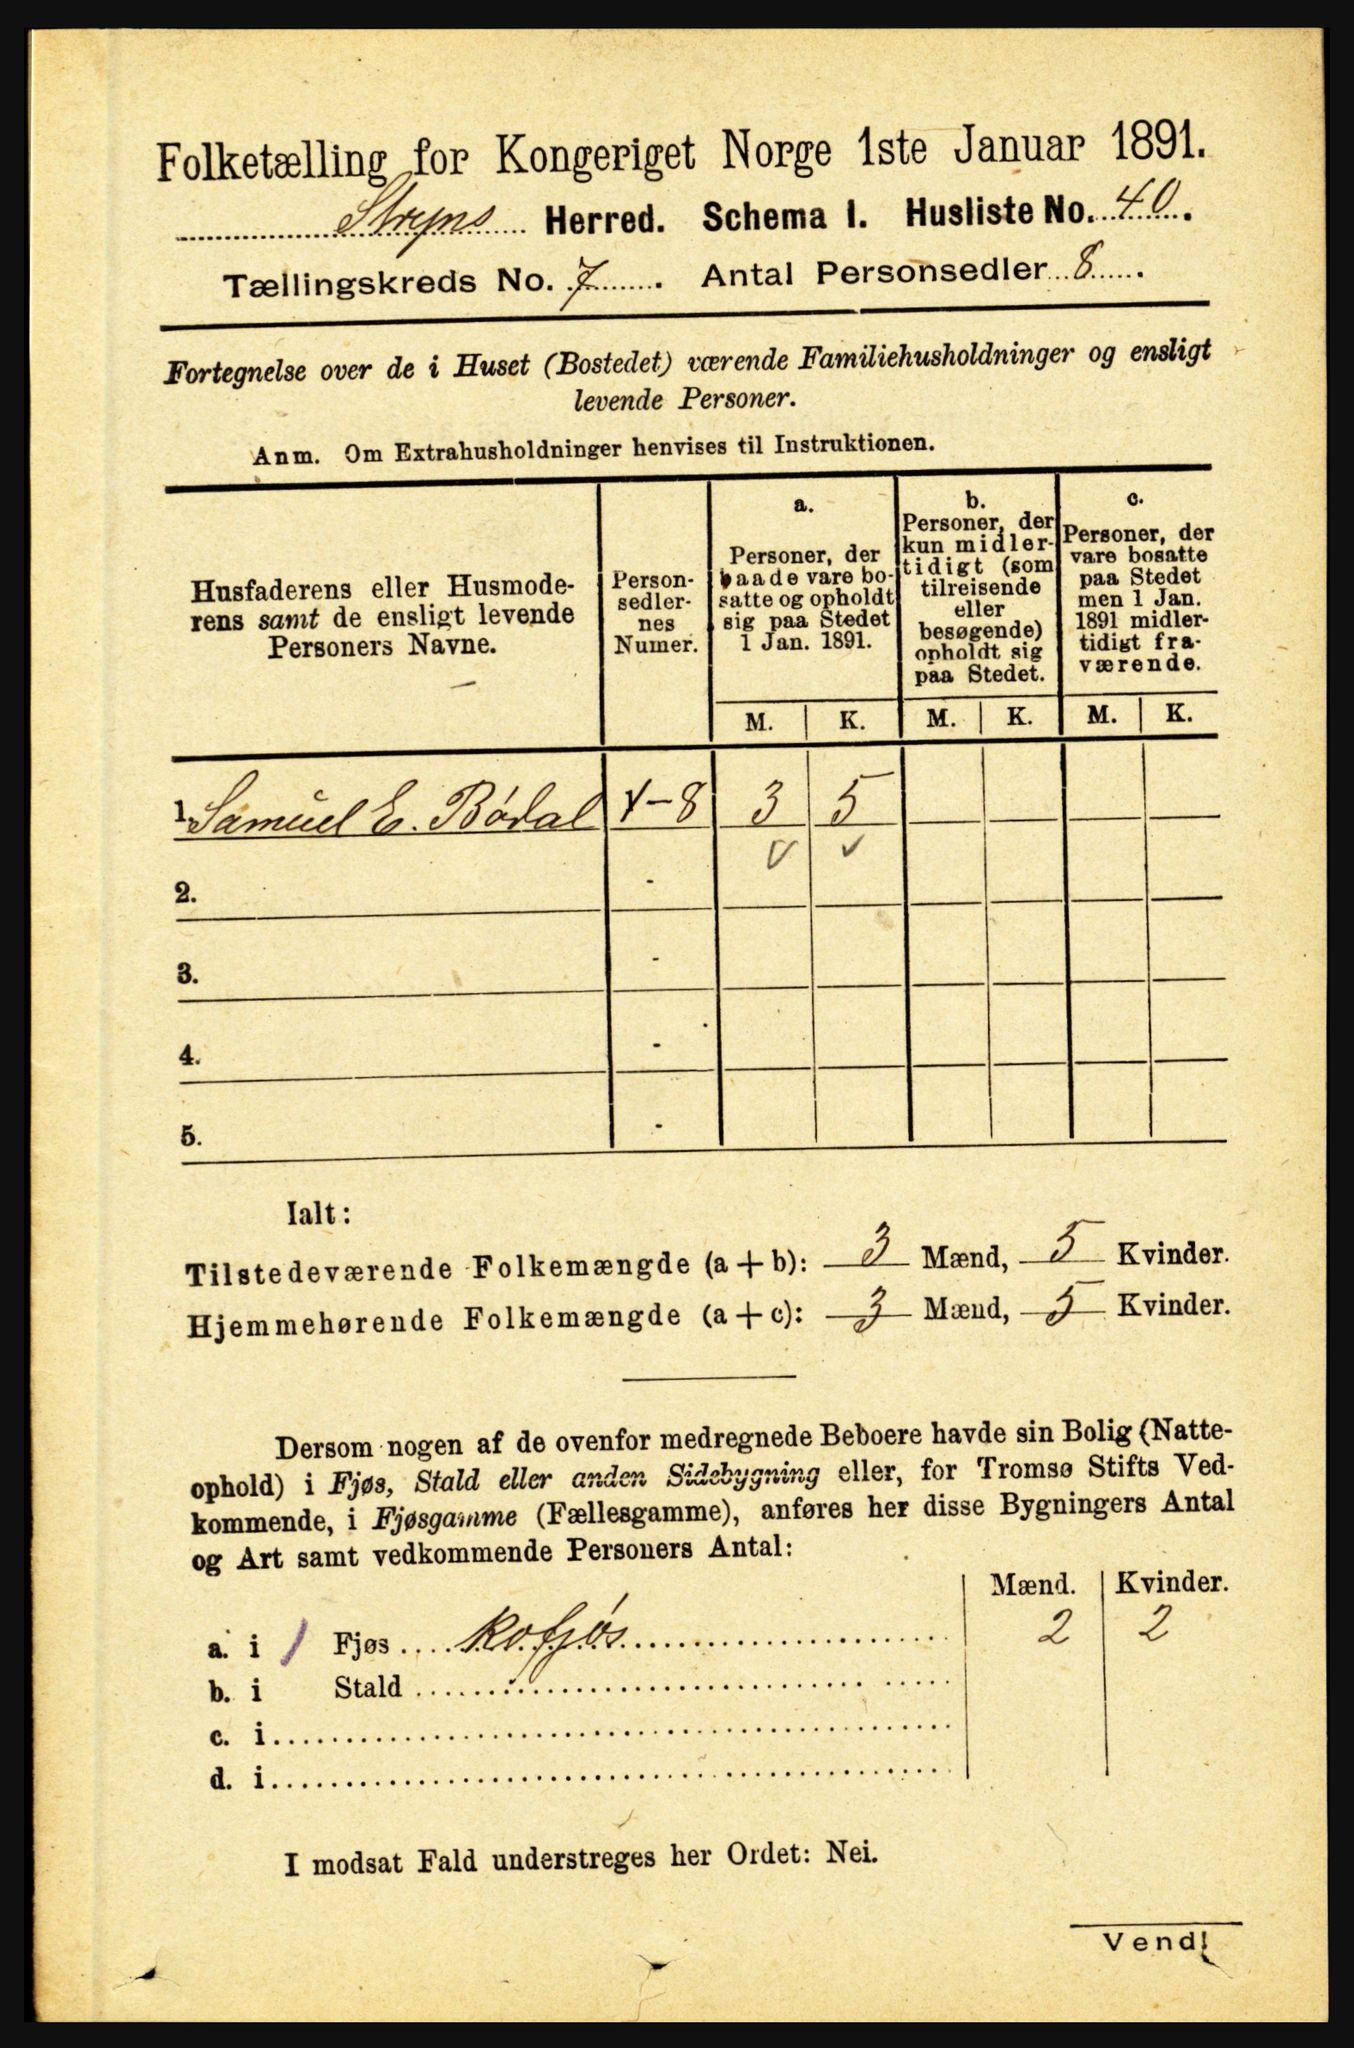 Folketælling for Kongeriget Norge 1ste Januar 1891.
Stryns Herred. Schema I. Husliste No. 40.
Tællingskreds No. 7. Antal Personsedler 8.
Fortegnelse over de i Huset (Bostedet) værende Familiehusholdninger og ensligt
levende Personer.
Anm. Om Extrahusholdninger henvises til Instruktionen.
Husfaderens eller Husmode-
rens samt de ensligt levende
Personers Navne.
Person-
sedler-
nes
Numer.
a.
Personer, der
baade vare bo-
satte og opholdt
sig paa Stedet
1 Jan. 1891.
b.
Personer, der
kun midler-
tidigt (som
tilreisende
eller
besøgende)
opholdt sig
paa Stedet.
c.
Personer, der
vare bosatte
paa Stedet
men 1 Jan.
1891 midler-
tidigt fra-
værende.
M. K. M. K. M. K.
1. Samuel E. Bødal 1-8 3 5
2. -
3. -
4. -
5. -
Ialt:
Tilstedeværende Folkemængde (a + b): 3 Mænd, 5 Kvinder.
Hjemmehørende Folkemængde (a + c): 3 Mænd, 5 Kvinder.
Dersom nogen af de ovenfor medregnede Beboere havde sin Bolig (Natte-
ophold) i Fjøs, Stald eller anden Sidebygning eller, for Tromsø Stifts Ved-
kommende, i Fjøsgamme (Fællesgamme), anføres her disse Bygningers Antal
og Art samt vedkommende Personers Antal:
Mænd. Kvinder.
a. i 1 Fjøs Kofjøs 2 2
b. i Stald
c. i
d. i
I modsat Fald understreges her Ordet: Nei.
Vend!